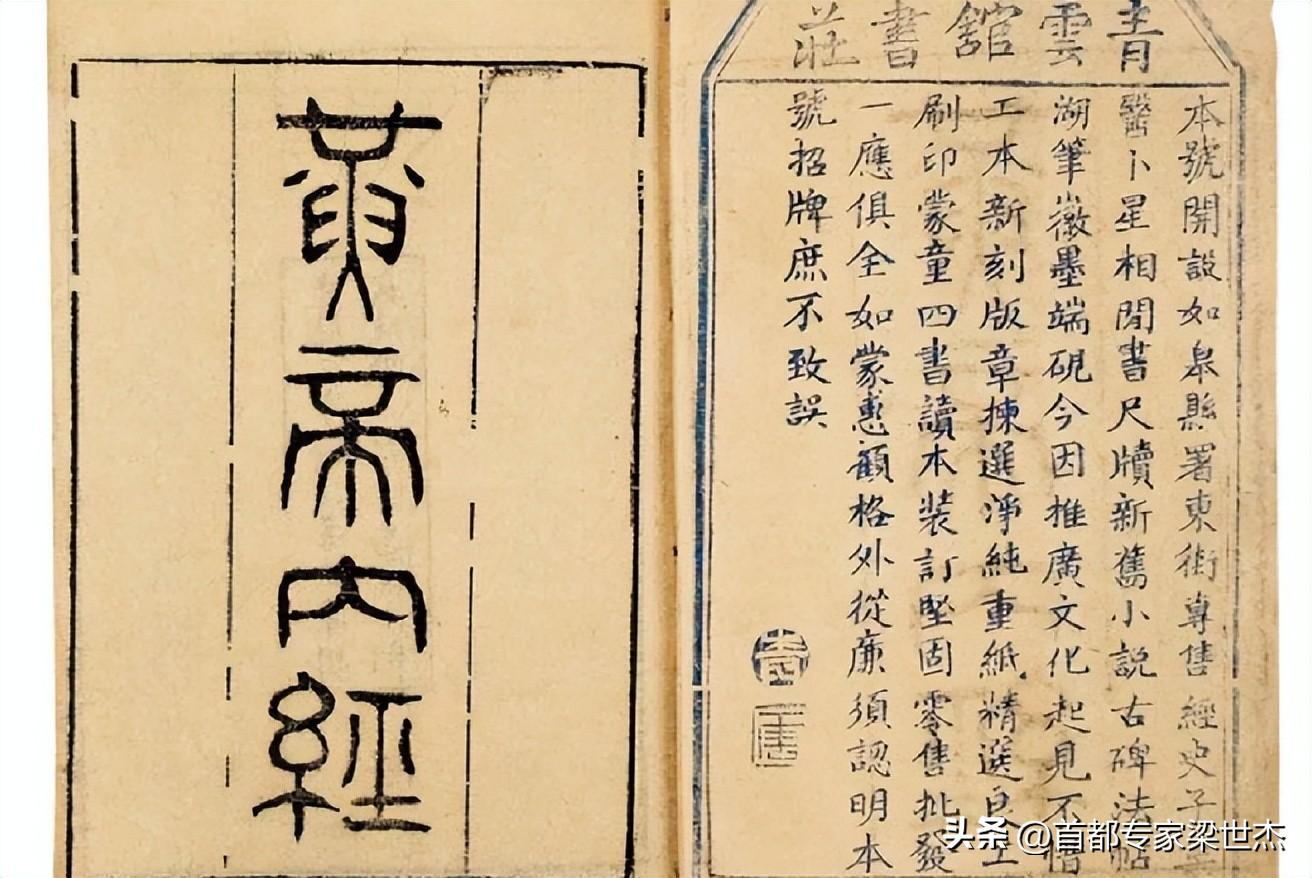 青雲舘書莊
本號開設如皋縣署東街專售經史子
醫卜星相閒書尺牘新舊小說古碑法帖
湖筆徽墨端硯今因推廣文化起見不惜
工本新刻版章揀選淨純重紙精選良工
刷印蒙童四書讀本裝訂堅固零售批發
一應俱全如蒙惠顧格外從廉須認明本
號招牌庶不致誤
黃帝內經
头条 @首都专家梁世杰